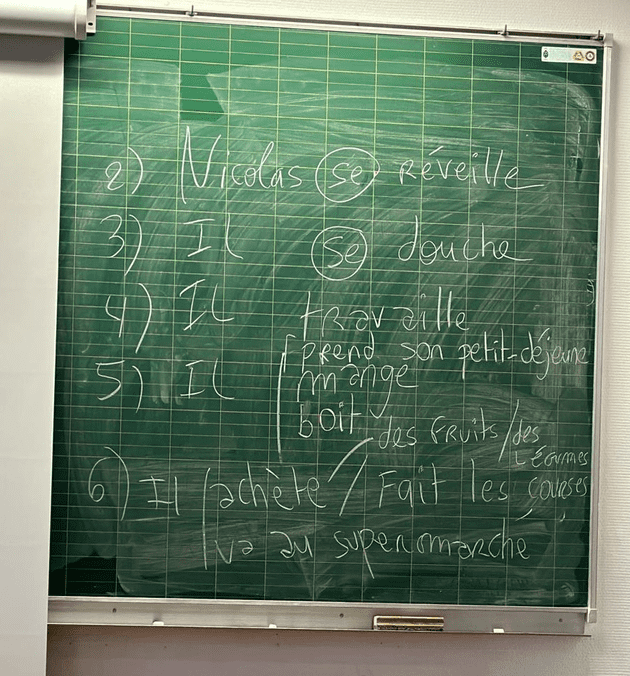 2) Nicolas se réveille
3) Il se douche
4) Il travaille
prend son petit-déjeune
5) Il mange
boit
des fruits/des
légumes
6) Il achète / Fait les courses
va au supermarché